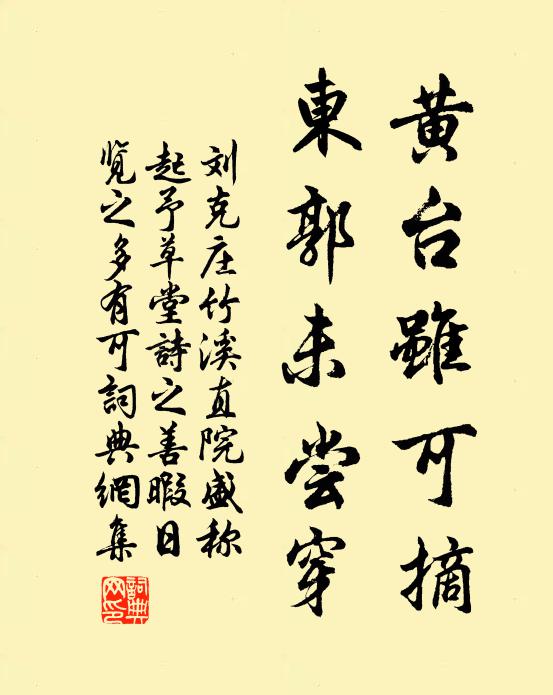 黄台雖可摘
東郭未尝穿
刘克庄竹溪直院盛称
起予草堂詩之善暇日
览之多有可詞典網集
詞典网印